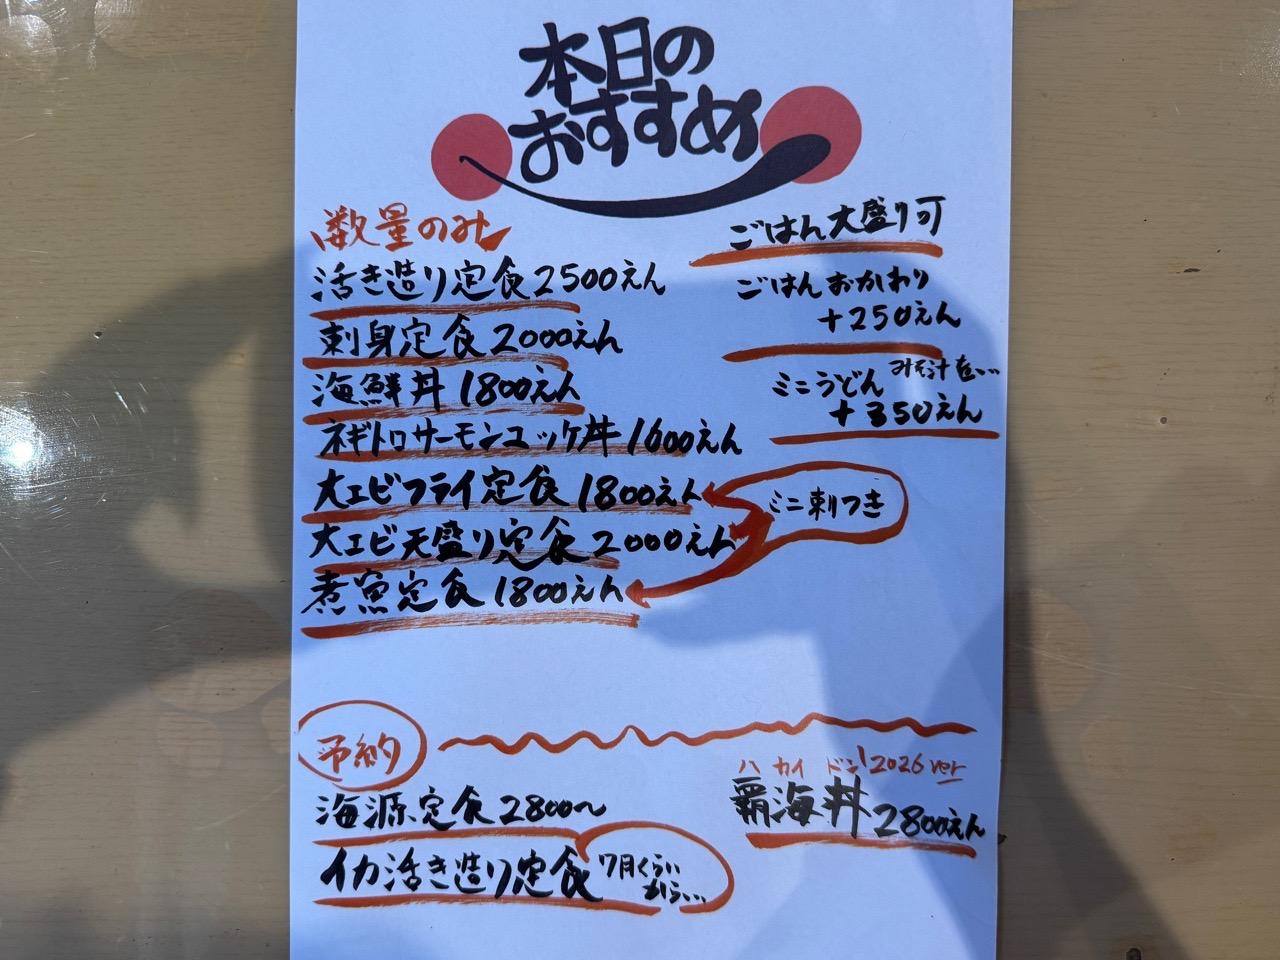 本日の
おすすめ
数量のみ
活き造り定食2500えん
刺身定食2000えん
海鮮丼1800えん
ネギトロサーモンユッケ丼1600えん
大エビフライ定食1800えん
大エビ天盛り定食2000えん
煮魚定食1800えん
ミニ刺つき
ごはん大盛り可
ごはんおかわり
+250えん
みそ汁を…
ミニうどん
+350えん
予約
海源定食2800〜
イカ活き造り定食
7月くらい
から…
ハカイドン!2026ver
覇海丼2800えん